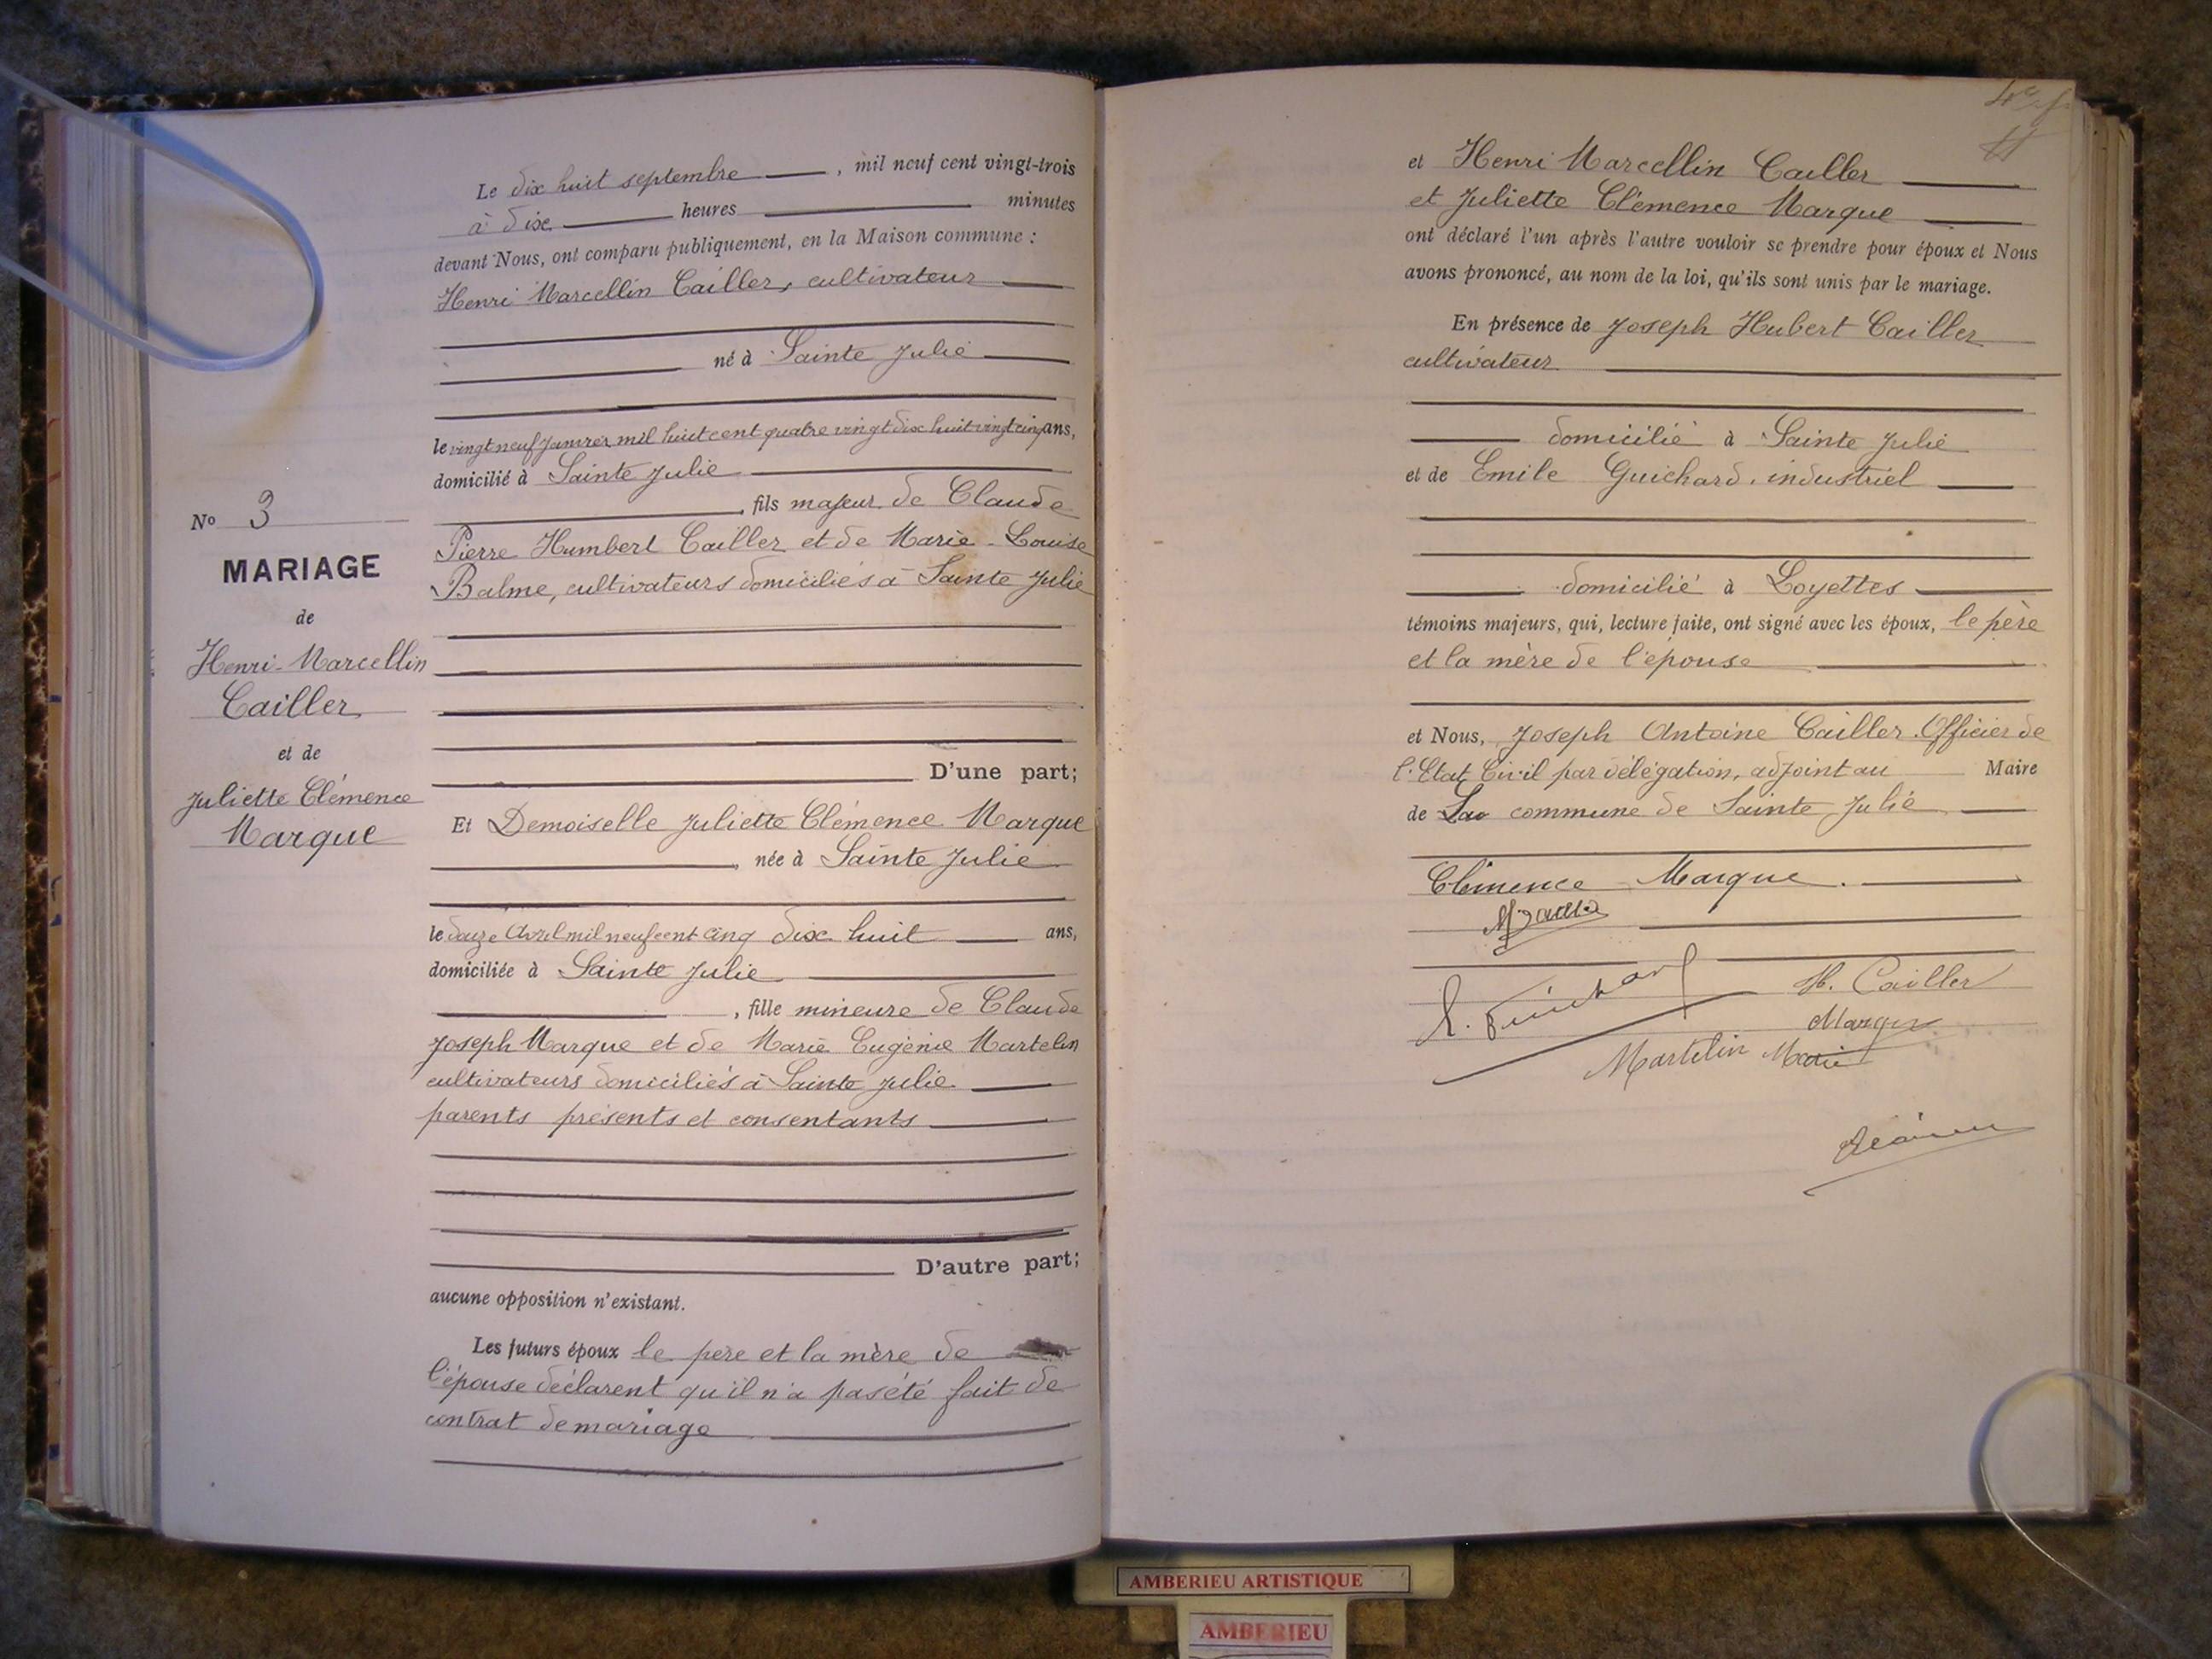 Le dix huit septembre, mil neuf cent vingt-trois
à dix heures minutes
devant Nous, ont comparu publiquement, en la Maison commune :
Henri Marcellin Cailler, cultivateur
né à Sainte Julie
le vingt neuf Janvier mil huit cent quatre vingt dix huit vingt cinq ans,
domicilié à Sainte Julie
, fils majeur de Claude
Pierre Humbert Cailler et de Marie-Louise
Balme, cultivateurs domiciliés à Sainte Julie
D'une part;
Et Demoiselle Juliette Clémence Marque
, née à Sainte Julie
le douze Avril mil neuf cent cinq dix huit ans,
domiciliée à Sainte Julie
, fille mineure de Claude
Joseph Marque et de Marie Eugénie Martelin
cultivateurs domiciliés à Sainte Julie
parents présents et consentants
D'autre part;
aucune opposition n'existant.
Les futurs époux le père et la mère de
l'épouse déclarent qu'il n'a pas été fait de
contrat de mariage
No 3
MARIAGE
de
Henri-Marcellin
Cailler
et de
Juliette Clémence
Marque
et Henri Marcellin Cailler
et Juliette Clémence Marque
ont déclaré l'un après l'autre vouloir se prendre pour époux et Nous
avons prononcé, au nom de la loi, qu'ils sont unis par le mariage.
En présence de Joseph Hubert Cailler
cultivateur
domicilié à Sainte Julie
et de Emile Guichard, industriel
domicilié à Loyettes
témoins majeurs, qui, lecture faite, ont signé avec les époux, le père
et la mère de l'épouse
et Nous, Joseph Antoine Cailler. Officier de
l'Etat Civil par délégation, adjoint au Maire
de La commune de Sainte Julie
Clémence Marque.
H. Cailler
Martelin Marie
AMBERIEU ARTISTIQUE
AMBERIEU